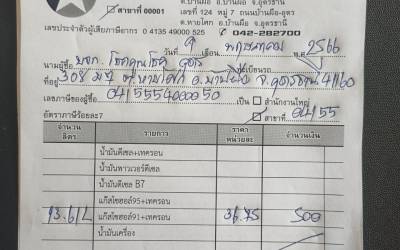 ต.บ้านผือ อ.บ้านผือ จ.อุดรธานี
☑ สาขาที่ 00001 เลขที่ 124 หมู่ 7 ถนนบ้านผือ-อุดร
ต.หายโศก อ.บ้านผือ จ.อุดรธานี
เลขประจำตัวผู้เสียภาษีอากร 0 4135 49000 525 ☎ 042-282700
วันที่ 9 เดือน พฤษภาคม พ.ศ. 2566
นามผู้ซื้อ บจก. โชคคูณโชค อุดร ทะเบียนรถ
ที่อยู่ 308 ม.4 ต.หายโศก อ.บ้านผือ จ.อุดรธานี 41160
เลขภาษีของผู้ซื้อ 0415554000050 เป็น ☐ สำนักงานใหญ่
อัตราภาษีร้อยละ7 ☑ สาขาที่ 04155
จำนวนลิตร รายการ ราคาหน่วยละ จำนวนเงิน
น้ำมันดีเซล+เทครอน
น้ำมันเพาเวอร์ดีเซล
น้ำมันดีเซล B7
แก๊สโซฮอล์95+เทครอน
13.61L แก๊สโซฮอล์91+เทครอน 36.75 500
น้ำมันเครื่อง